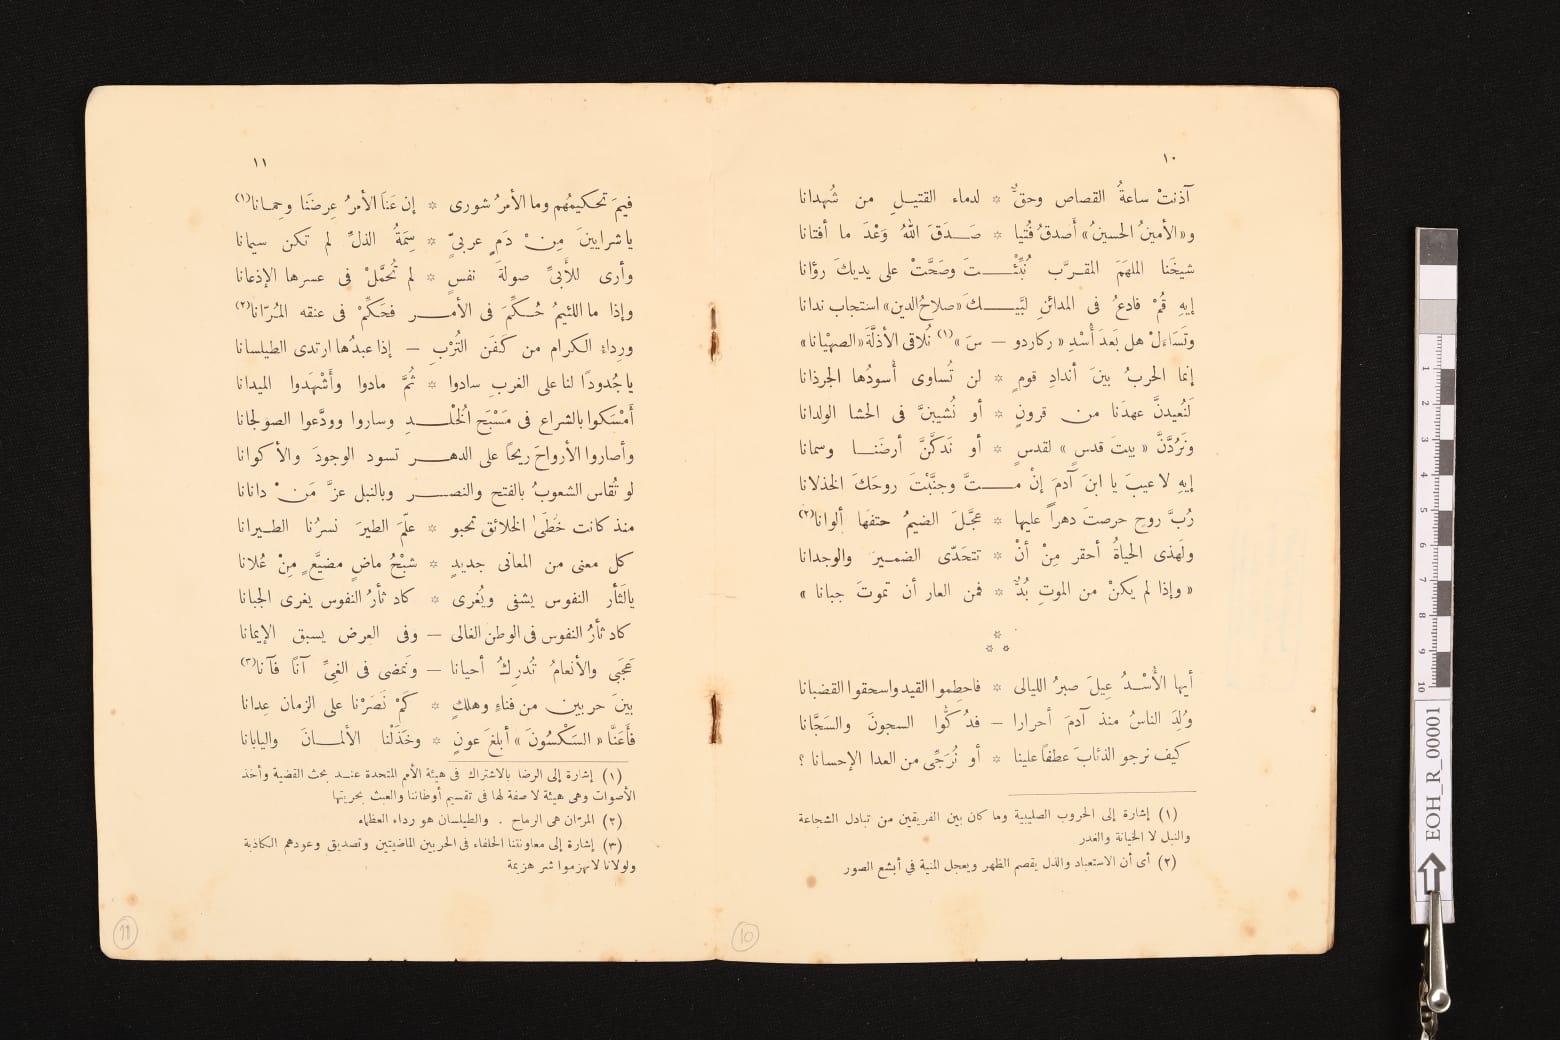 ١٠
آذنتْ ساعةُ القصاص وحقٌّ * لدماء القتيــل من شُهدانا
و«الأمينُ الحسينُ» أَصدقُ فُتيا * صَــدَقَ اللهُ وَعْدَ ما أفتانا
شيخَنا الملهَمَ المقــرَّب نُبِّئْــــتَ وصَحَّتْ على يديكَ رؤانا
إيهِ قُمْ فادعُ فى المدائنِ لبَّيْــــكَ «صلاحُ الدين» استجاب ندانا
وتَسَاءَلْ هل بَعدَ أُسْدِ «ركاردو — سَ»(١) نُلاقى الأذلَّةَ «الصهْيانا»
إنما الحربُ بينَ أندادِ قومٍ * لن تُساوى أُسودُها الجرذانا
لَنُعيدنَّ عهدَنا من قرونٍ * أو نُشيبنَّ فى الحشا الولدانا
ونَرُدَّنَّ «بيتَ قدسٍ» لقدسٍ * أو نَدكَّنَّ أرضَنــا وسمانا
إيهِ لا عيبَ يا ابنَ آدمَ إنْ مــــتَّ وجنَّبْتَ روحَكَ الخذلانا
رُبَّ روحٍ حرصتَ دهراً عليها * عجَّلَ الضيمُ حتفَها ألوانا(٢)
ولَهذى الحياةُ أحقر مِنْ أنْ * تتحَدّى الضمــيرَ والوجدانا
«وإذا لم يكنْ من الموتِ بُدٌّ * فمن العار أن تموتَ جبانا»
* * *
أيها الأُسْــدُ عِيلَ صبرُ الليالى * فاحطِموا القيد واسحقوا القضبانا
وُلِدَ الناسُ منذ آدمَ أحرارا — فدُكُّوا السجونَ والسَجَّانا
كيف نرجو الذئابَ عطفاً علينا * أو نُرَجِّى من العدا الإحسانا ؟
(١) إشارة إلى الحروب الصليبية وما كان بين الفريقين من تبادل الشجاعة
والنبل لا الخيانة والغدر
(٢) أى أن الاستعباد والذل يقصم الظهر ويعجل المنية في أبشع الصور
10
١١
فيمَ تحكيمُهم وما الأمرُ شورى * إن عَنَا الأمرُ عِرضَنَا وحِمــانا(١)
يا شرايينَ مِنْ دَمٍ عربيّ * سِمَةُ الذلِّ لم تكن سيمانا
وأرى للأَبىِّ صولةَ نفسٍ * لم تُحمَّلْ فى عسرها الإذعانا
وإذا ما اللئيمُ حُــكِّمَ فى الأمــــر فحَكِّمْ فى عنقه المُرّانا(٢)
ورِداءُ الكرام من كَفَن التُرْبِ — إذا عبدُها ارتدى الطيلسانا
يا جُدودًا لنا على الغربِ سادوا * ثُمَّ مادوا وأَشْهَدوا الميدانا
أَمْسَكوا بالشراع فى مَسْبَحِ الخُلْــــدِ وساروا وودَّعوا الصولجانا
وأصاروا الأرواحَ ريحًا على الدهــــر تسود الوجودَ والأكوانا
لو تُقاس الشعوبُ بالفتح والنصــــر وبالنبل عزَّ مَنْ دانانا
منذ كانت خُطَى الخلائق تحبو * علّمَ الطيرَ نسرُنا الطــيرانا
كل معنى من المعانى جديدٍ * شبْحُ ماضٍ مضيَّعٍ مِنْ عُلانا
يالَثأر النفوس يشفى ويُغرى * كاد ثأرُ النفوس يغرى الجبانا
كاد ثأرُ النفوس فى الوطن الغالى — وفى العرض يسبق الإيمانا
عَجَبى والأنعامُ تُدرِكُ أحيانا — ونمضى فى الغىِّ آنًا فآنا(٣)
بينَ حربين من فناءٍ وهلكٍ * كَمْ نَصَرْنا على الزمان عِدانا
فأَعَنَّا «السَكْسُونَ» أبلغَ عونٍ * وخَذَلْنا الألمــانَ واليابانا
(١) إشارة إلى الرضا بالاشتراك فى هيئة الأمم المتحدة عنــد بحث القضية وأخذ
الأصوات وهى هيئة لا صفة لها فى تقسيم أوطاننا والعبث بحريتها
(٢) المرّان هى الرماح . والطيلسان هو رداء العظماء
(٣) إشارة إلى معاونتنا الحلفاء فى الحربين الماضيتين وتصديق وعودهم الكاذبة
ولولانا لانهزموا شر هزيمة
11
1
2
3
4
5
6
7
8
9
10
EOH_R_00001